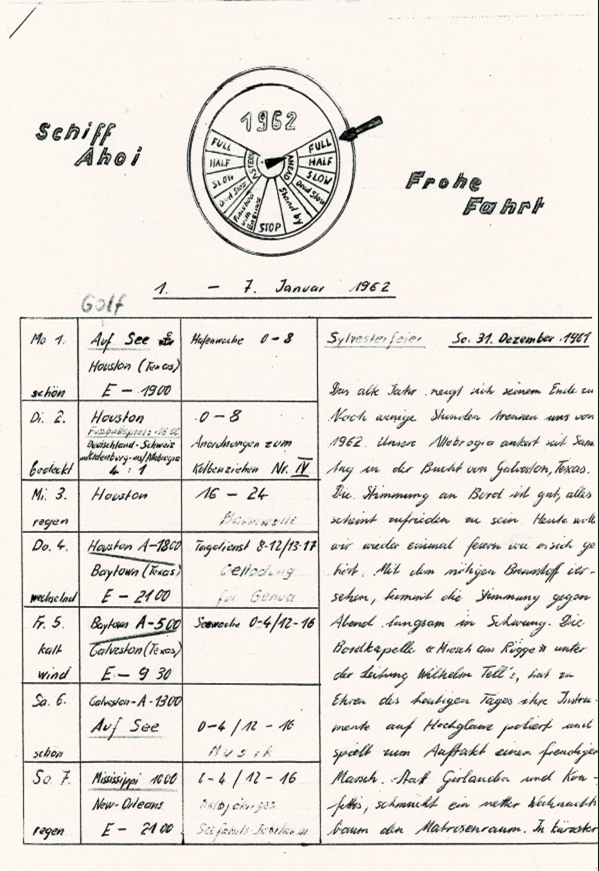 Schiff
Ahoi
1962
FULL
HALF
SLOW
Dead Slow
Finished with Engines
STOP
Stand by
Dead Slow
SLOW
HALF
FULL
ASTERN
AHEAD
Frohe
Fahrt
1. - 7. Januar 1962
Golf
Mo 1.
schön
Auf See
Houston (Texas)
E - 1900
Hafenwache 0-8
Di. 2.
bedeckt
Houston
Deutschland - Schweiz
4 : 1
0-8
Anordnungen zum
Kolbenziehen Nr. IV
Mi. 3.
regen
Houston
16 - 24
Do. 4.
wechselnd
Houston A-1800
Baytown (Texas)
E - 2100
Tagedienst 8-12/13-17
Oelladung
für Genua
Fr. 5.
kalt
wind
Baytown A-500
Galveston (Texas)
E - 9 30
Seewache 0-4/12-16
Sa. 6.
schön
Galveston-A-1300
Auf See
0-4 / 12 - 16
Musik
So 7.
regen
Mississippi 1000
New-Orleans
E - 2100
0-4 / 12-16
Sylvesterfeier So. 31. Dezember 1961
Das alte Jahr neugt sich seinem Ende zu
Noch wenige Stunden trennen uns von
1962. Unsere Allobrogia ankert seit Sams
tag in der Bucht von Galveston, Texas.
Die Stimmung an Bord ist gut, alles
scheint zufrieden zu sein. Heute wolle
wir wieder einmal feiern wie es sich ge
hört. Mit dem nötigen Brennstoff ver-
sehen, kommt die Stimmung gegen
Abend langsam in Schwung. Die
Bordkapelle « Miesch am Rügge » unter
der Leitung Wilhelm Tell's, hat zu
Ehren des heutigen Tages ihre Instru-
mente auf Hochglanz poliert und
spielt zum Auftakt einen freudigen
Marsch. Statt Girlanden und Kon-
fettis, schmückt ein netter Weihnachts
baum den Matrosenraum. In kürzester